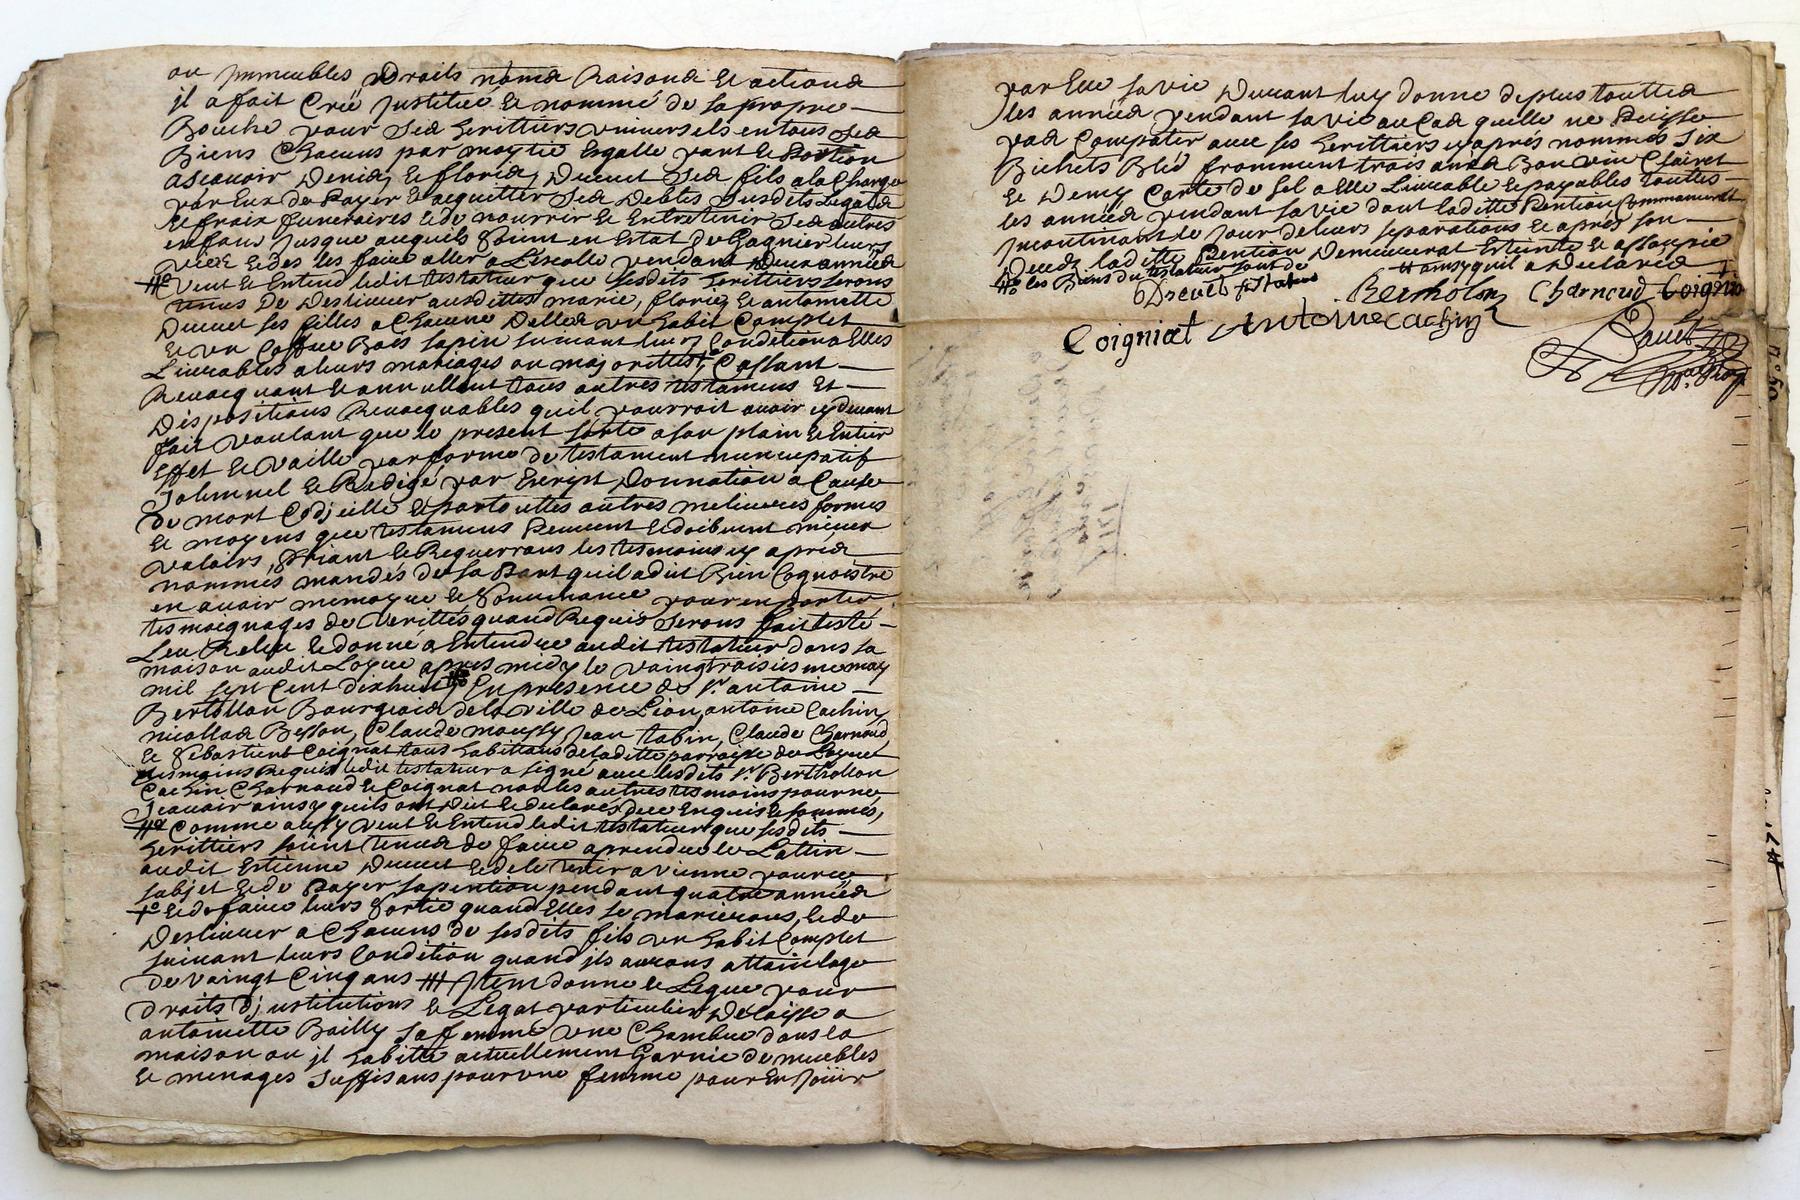 ou jmmeubles Droits noms Raisons & actions
jl a fait Créé justitué & nommé de sa propre
Bouche pour Ses herittiers vniversels en tous Ses
Biens Chacuns par moytié Esgalle part & Portion
ascavoir Denis & floris Ducuet Ses fils a la Charge
par Eux de Payer & acquitter Ses Debtes Susdits Legats
& fraix funeraires & de nourrir & Entretenir Ses autres
enfans jusque auquils Soient en Estat de Gagnier leurs
vies & des les faire aller a L'escolle pendant Deux années
veut & Entend ledit testateur que Sesdits herittiers Serons
tenus De Deslivrer ausdittes marie, florie, & antoinette
Ducuet ses filles a Chacune D'elles vn habit Complet
& vn Coffre Bois sapin suivant leurs Conditions a Elles
Livrables a leurs mariages ou majorittes, Cassant
Revocquant & annullant tous autres testamens Et
Dispositions Revocquables qu'il pourroit avoir cy devant
fait voulant que le present sorte a son plain & Entier
Effet & vaille par forme de testament nuncupatif
Solemnel & Redigé par Escript Donnation a Cause
de mort Codjcille & par touttes autres melieures formes
& moyens que testamens Peuvent & doibvent mieux
valoirs, Priant & Requerrans les tesmoins cy aprés
nommés mandés de sa Part qu'il a dit Bien Cognoistre
en avoir memoyre & Souvenance pour en porter
tesmoegnages de Verittés quand Requis Serons fait testé
Leu Releu & donné a Entendre audit testateur dans sa
maison audit Loyue apres midy le vaingtroisiesme may
mil sept Cent dixhuit En presence de Sr. antoine
Berthollon Bourgeois de la ville de Lion, antoine Cachin,
nicollas Besson, Claude moussy Jean tabin, Claude Charnoud
& Sebastient Coignat tous habittans de laditte parroisse de
tesmoins Requis ledit testateur a signé avec lesdits Sr. Berthollon
Cachin Charnoud & Coignat non les autres tesmoins pour ne
Scavoir ainsy quils ont Dit & declarés de ce Enquis & sommés,
Comme aussy veut & Entend ledit testateur que sesdits
herittiers soient tenus de faire aprendre le Lattin
audit Estienne Ducuet & de le tenir a vienne pour ce
subjet & de Payer sa pention pendant quatre années
& de faire leurs Sortie quand Elles se marierons, & de
Deslivrer a Chacuns de sesdits fils vn habit Complet
suivant leurs Condition quand jls aurons attain l'age
de vaingt Cinq ans # Jtem donne & Legue pour
droits D'justitutions & Legat particulier Delaisse a
antoinette Bailly Sa femme vne Chambre dans la
maison ou jl habitte actuellement Garnie de meubles
& menages Suffisans pour vne femme pour En Jouir
par Elle sa vie Durant luy donne de plus touttes
les années pendant sa vie au Cas quelle ne Puisse
pas Compater avec ses herittiers cy aprés nommés Six
Bichets Bled fromment trois anés Bon vin Clairet
& Demy Carte de sel a Elle Livrable & payables touttes
les années pendant sa vie dont laditte Pention Commancerat
jncontinant le jour de leurs separations & aprés son
Deces laditte Pention Demeurerat Eteinte & assoupie
les Biens du testateur sont de ainsy quil a Declarés
Ducuet testateur Bertholon Charnoud Coignat
Coigniat Antoine Cachin